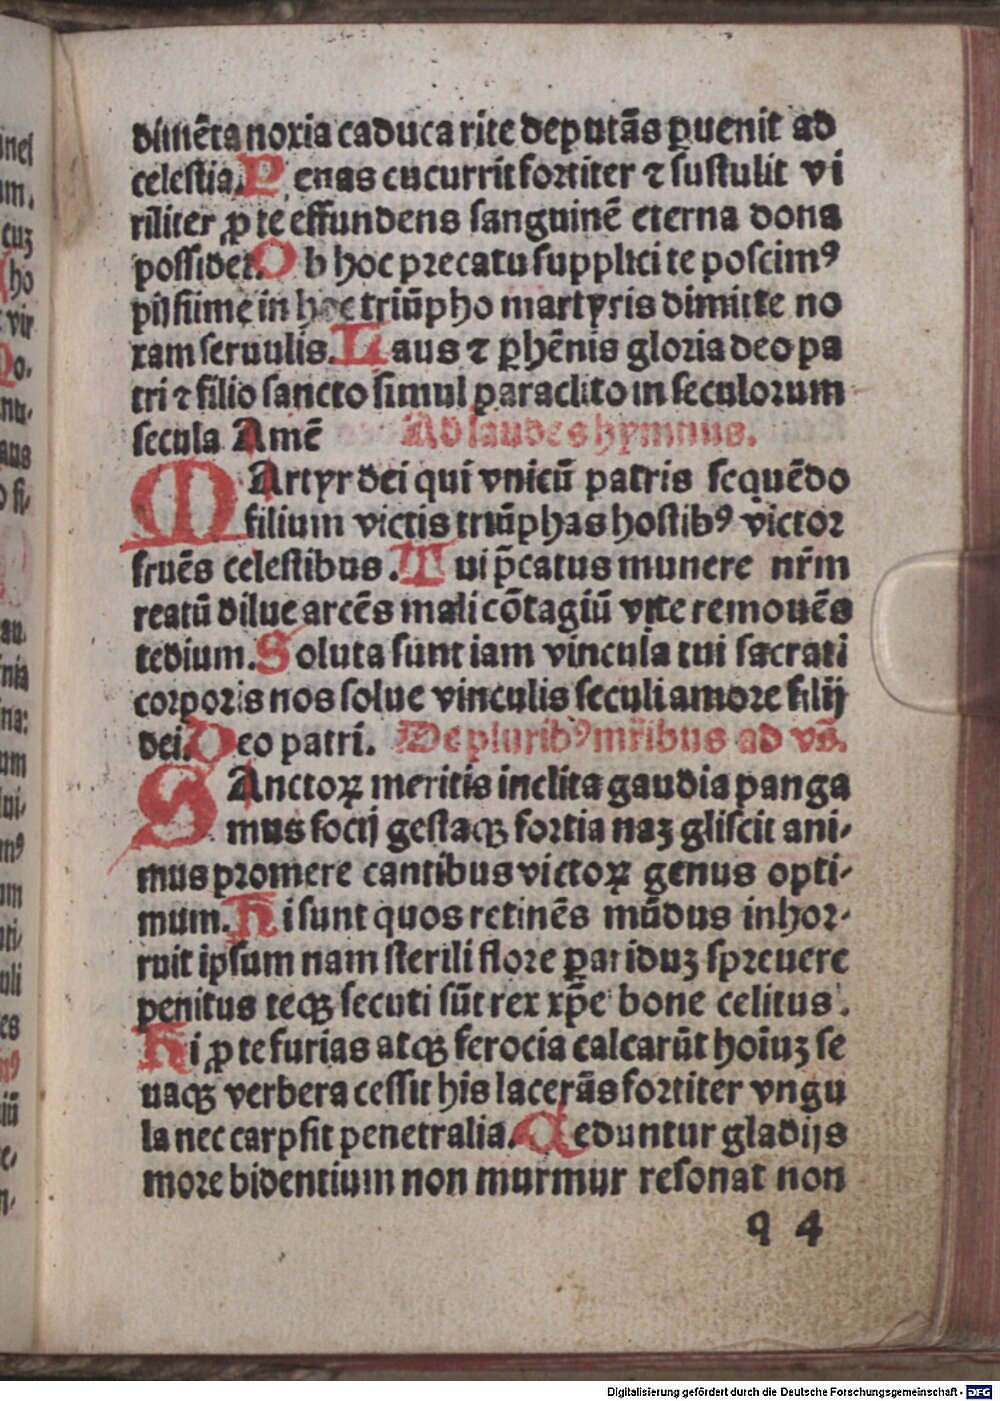 dimēta noxia caduca rite deputās ꝑuenit ad
celestia. Penas cucurrit fortiter ⁊ sustulit vi
riliter ꝓ te effundens sanguinē eterna dona
possidet. Ob hoc precatu supplici te poscimꝰ
pijssime in hoc triūpho martyris dimitte no
xam seruulis. Laus ⁊ ꝑhēnis gloria deo pa
tri ⁊ filio sancto simul paraclito in seculorum
secula Amē Ad laudes hymnus.
MArtyr dei qui vnicū patris sequēdo
filium victis triūphas hostibꝰ victor
fruēs celestibus. Tui p̄catus munere nr̄m
reatū dilue arcēs mali cōtagiū vite remouēs
tedium. Soluta sunt iam vincula tui sacrati
corporis nos solue vinculis seculi amore filij
dei. Deo patri. De pluribꝰ mr̄ibus ad vs̄.
SAnctoꝝ meritis inclita gaudia panga
mus socij gestaqꝫ fortia naꝫ gliscit ani-
mus promere cantibus victoꝝ genus opti-
mum. Hi sunt quos retinēs mūdus inhor-
ruit ipsum nam sterili flore ꝑariduꝫ spreuere
penitus teqꝫ secuti sūt rex xp̄e bone celitus.
Hi ꝓ te furias atqꝫ ferocia calcarūt hoīuꝫ se
uaqꝫ verbera cessit his lacerās fortiter vngu
la nec carpsit penetralia. Ceduntur gladijs
more bidentium non murmur resonat non
q 4
Digitalisierung gefördert durch die Deutsche Forschungsgemeinschaft - DFG